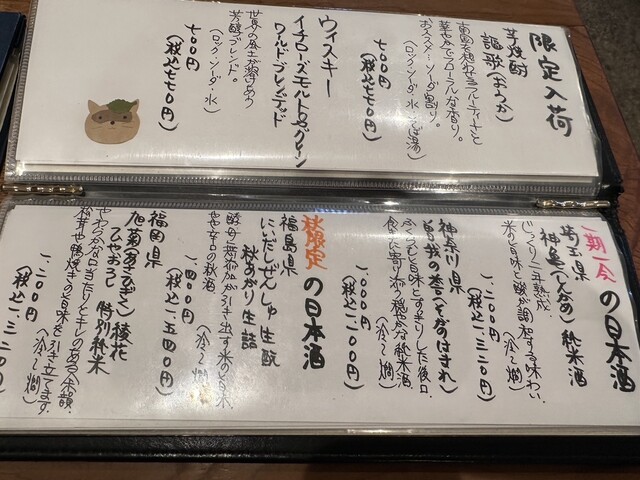 限定入荷
芋焼酎
謳歌(おうか)
南国を想わせるフルーティさと
華やかでフローラルな香り。
おススメ:ソーダ割り。
(ロック・ソーダ・水・お湯)
七〇〇円
(税込七七〇円)
ウィスキー
イチローズモルト&グレーン
ワールドブレンデッド
世界の風土が溶け合う
芳醇ブレンド。
(ロック・ソーダ・水)
七〇〇円
(税込七七〇円)
一期一会の日本酒
埼玉県
神亀(しんかめ) 純米酒
じっくり二年熟成。
米の旨味と酸が調和する味わい
(冷〜燗)
一、二〇〇円
(税込一、三二〇円)
神奈川県
曽我の誉(そがのほまれ)
ふくらむ旨味とすっきりした後口。
食事に寄り添う穏やかな純米酒
(冷〜燗)
一、〇〇〇円
(税込一、一〇〇円)
秋限定の日本酒
福島県
にいだしぜんしゅ 生酛
秋あがり 生詰
酵母無添加が引き出す米の旨味
やや辛口の秋酒
(冷〜燗)
一、四〇〇円
(税込一、五四〇円)
福岡県
旭菊(あさひぎく) 綾花
ひやおろし 特別純米
やわらかな口当たりとキレのある余韻。
松茸や鴨焼きの旨味を引き立てます。
(冷〜燗)
一、二〇〇円
(税込一、三二〇円)